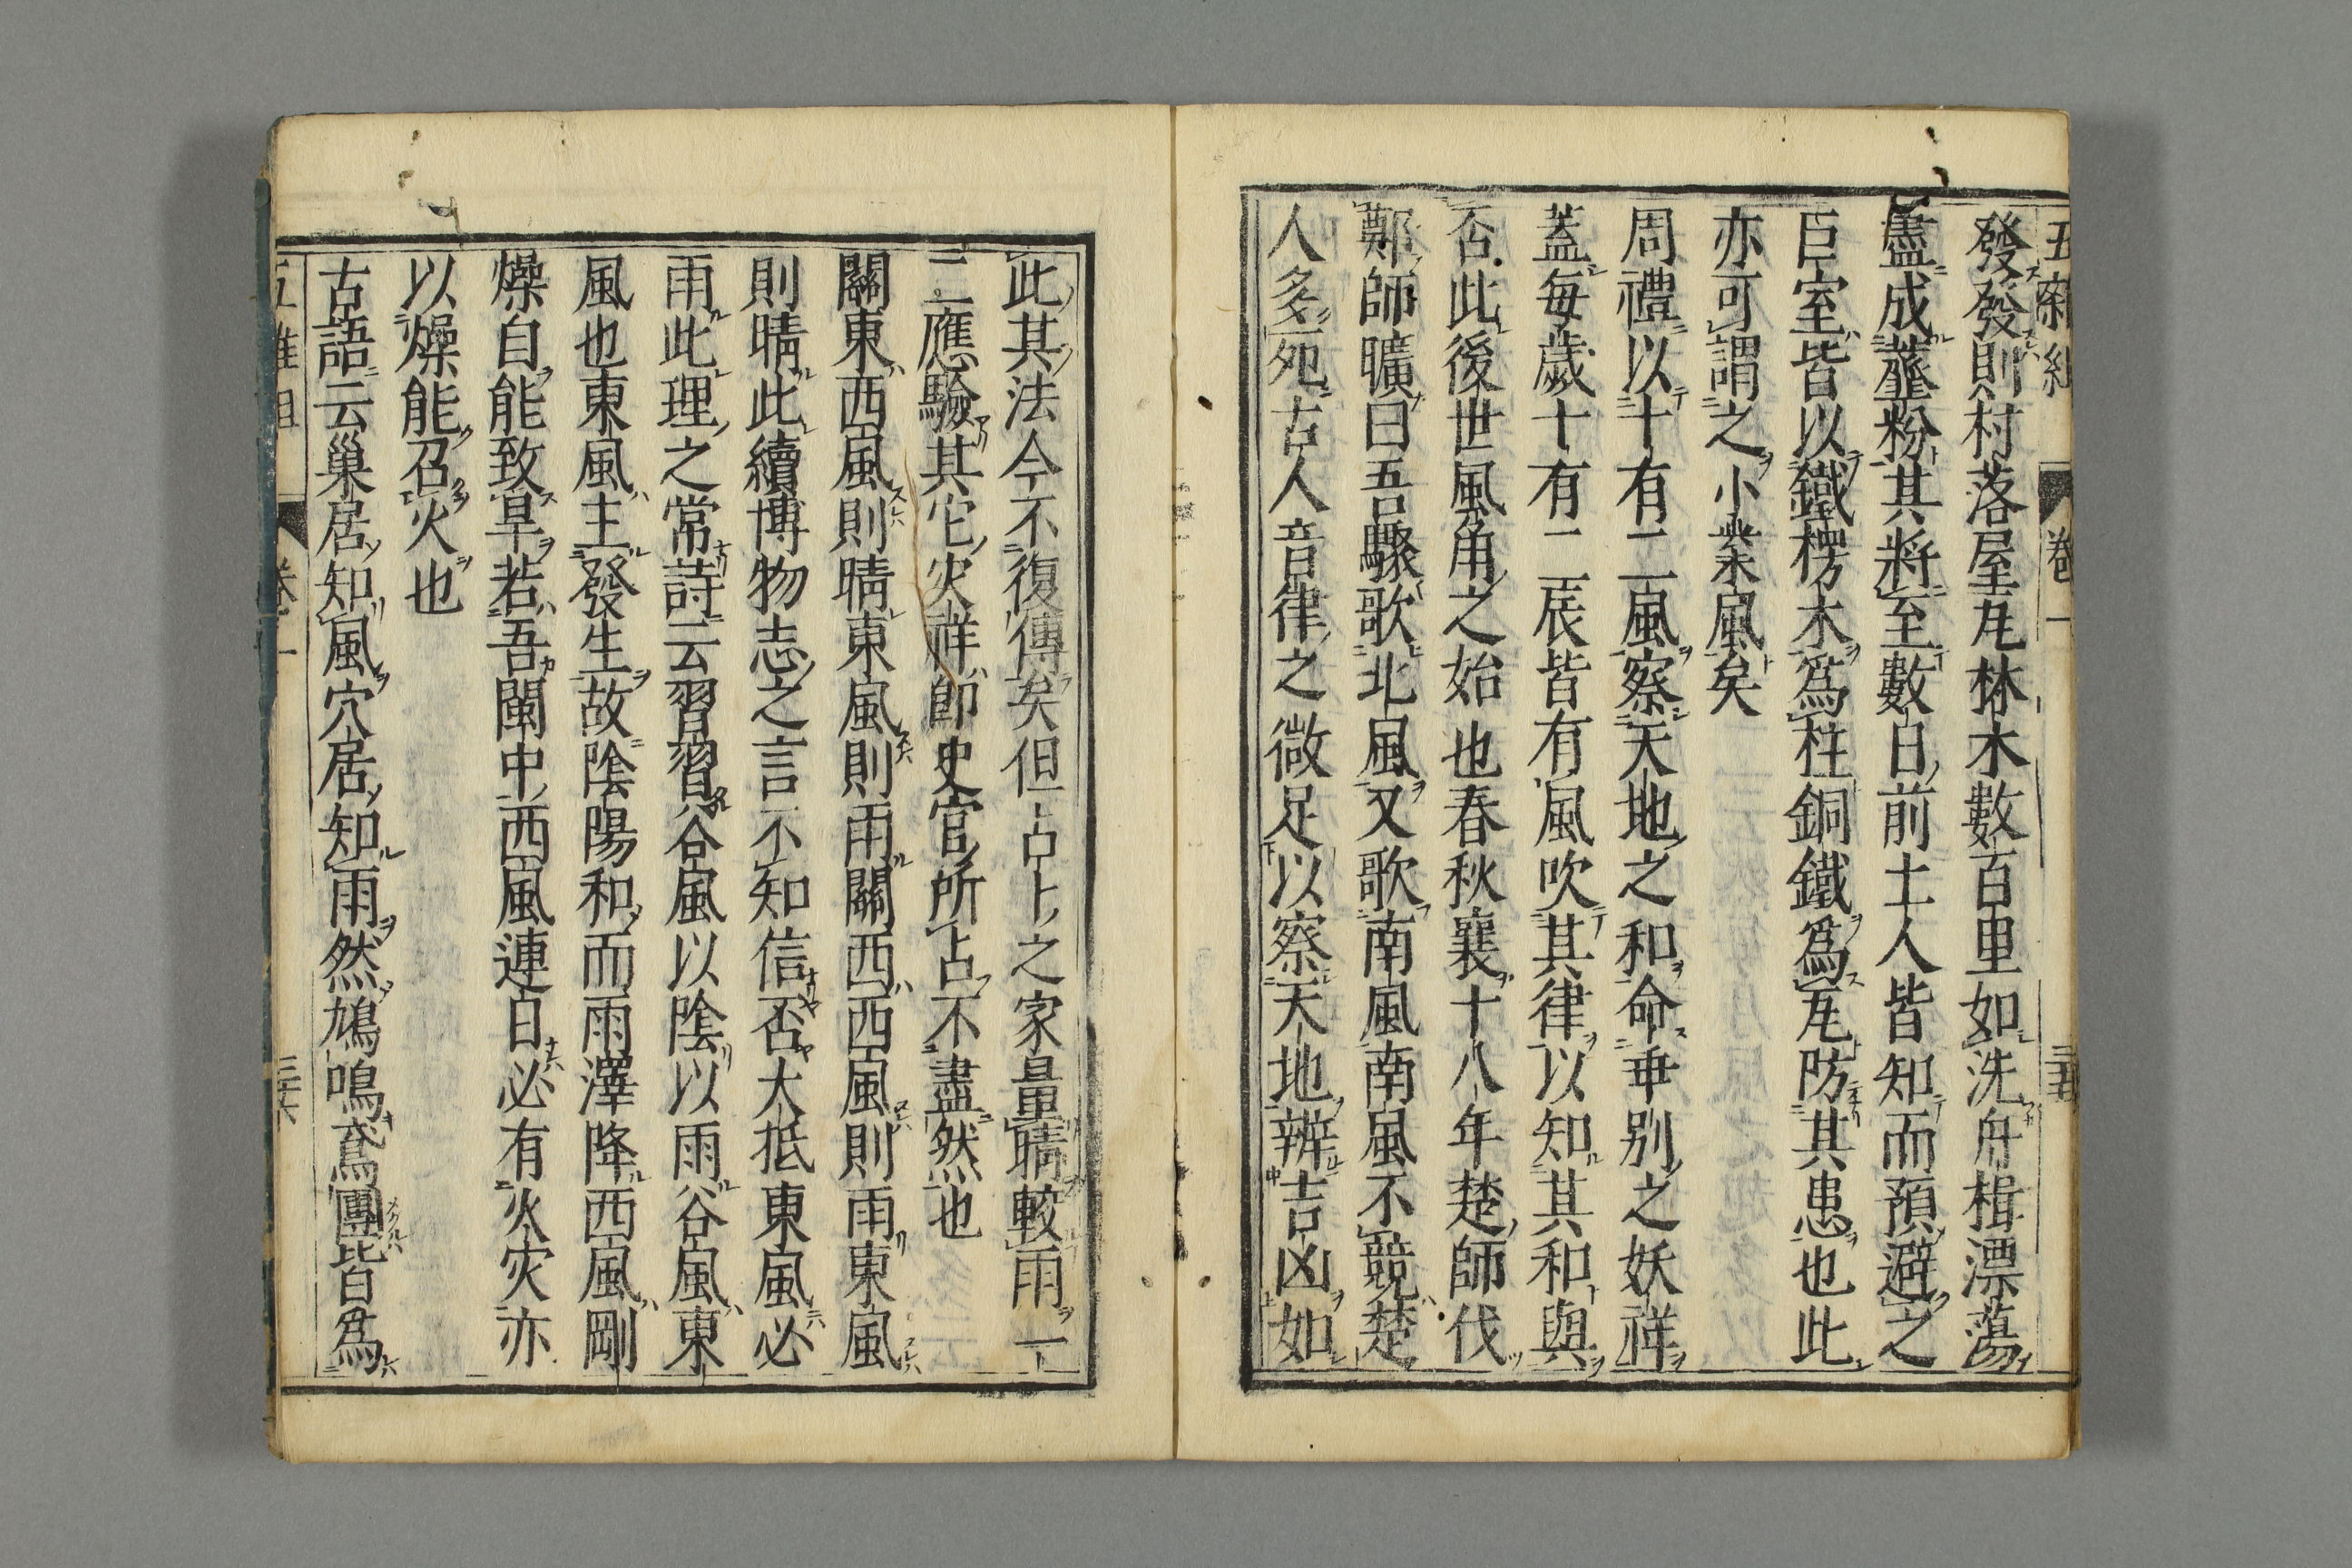 五雜組 卷一 三十五
發發則村落屋瓦林木數百里如洗舟楫漂蕩
盡成虀粉其將至數日前土人皆知而預避之
巨室皆以鐵楞木為柱銅鐵為瓦防其患也此
亦可謂之小業風矣
周禮以十有二風察天地之和命乖別之妖祥
蓋每歲十有二辰皆有風吹其律以知其和與
否此後世風角之始也春秋襄十八年楚師伐
鄭師曠曰吾驟歌北風又歌南風南風不競楚
人多死古人音律之微足以察天地辨吉凶如
此其法今不復傳矣但占卜之家量晴較雨一
二應驗其它灾祥即史官所占不盡然也
關東西風則晴東風則雨關西西風則雨東風
則晴此續博物志之言不知信否大抵東風必
雨此理之常詩云習習谷風以陰以雨谷風東
風也東風主發生故陰陽和而雨澤降西風剛
燥自能致旱若吾閩中西風連日必有火灾亦
以燥能召火也
古語云巢居知風穴居知雨然鳩鳴鳶團皆為
五雜組 卷一 三十六